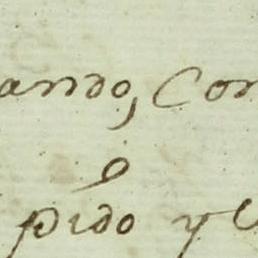 ando, Con
o
pido y